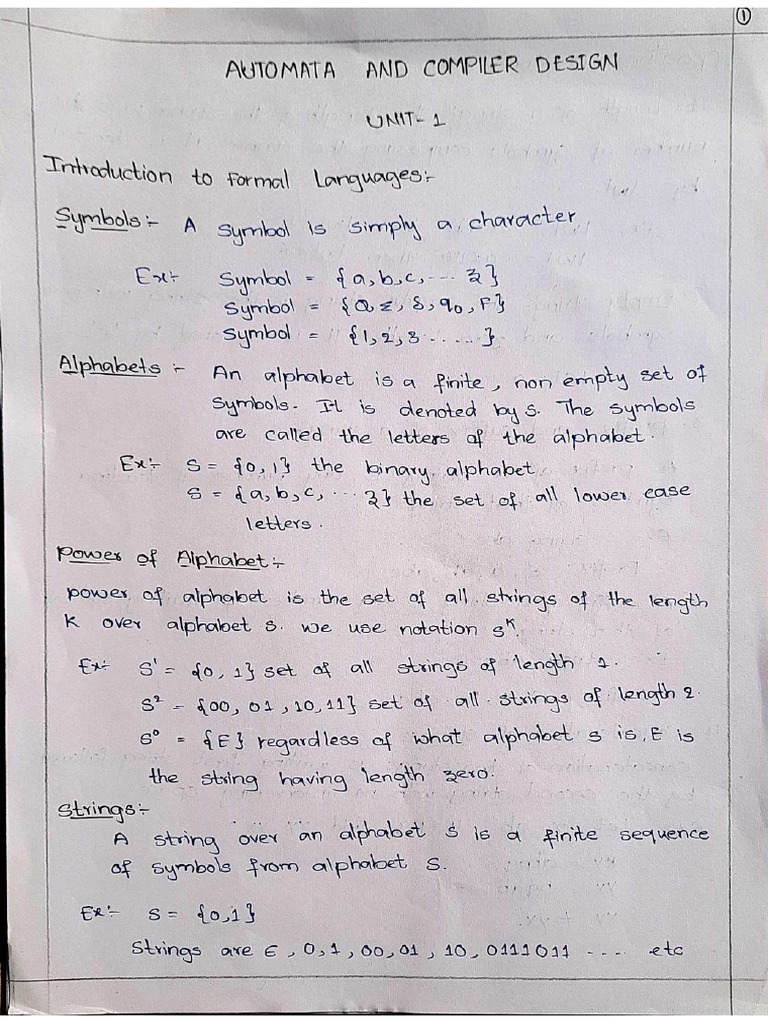 ①
AUTOMATA AND COMPILER DESIGN
UNIT-1
Introduction to Formal Languages:-
Symbols:- A symbol is simply a character
Ex:- Symbol = {a,b,c,---- z}
Symbol = {Q, Σ, δ, q0, F}
Symbol = {1,2,3 ......}
Alphabets :- An alphabet is a finite, non empty set of
symbols. It is denoted by s. The symbols
are called the letters of the alphabet.
Ex:- S = {0,1} the binary alphabet
S = {a,b,c, --- z} the set of all lower case
letters.
Power of Alphabet:-
power of alphabet is the set of all strings of the length
K over alphabet s. we use notation s^K.
Ex:- S^1 = {0,1} set of all strings of length 1.
S^2 = {00, 01, 10, 11} set of all strings of length 2.
S^0 = {E} regardless of what alphabet s is, E is
the string having length zero.
Strings:-
A string over an alphabet s is a finite sequence
of symbols from alphabet s.
Ex:- S = {0,1}
Strings are ϵ, 0, 1, 00, 01, 10, 0111011 ---- etc